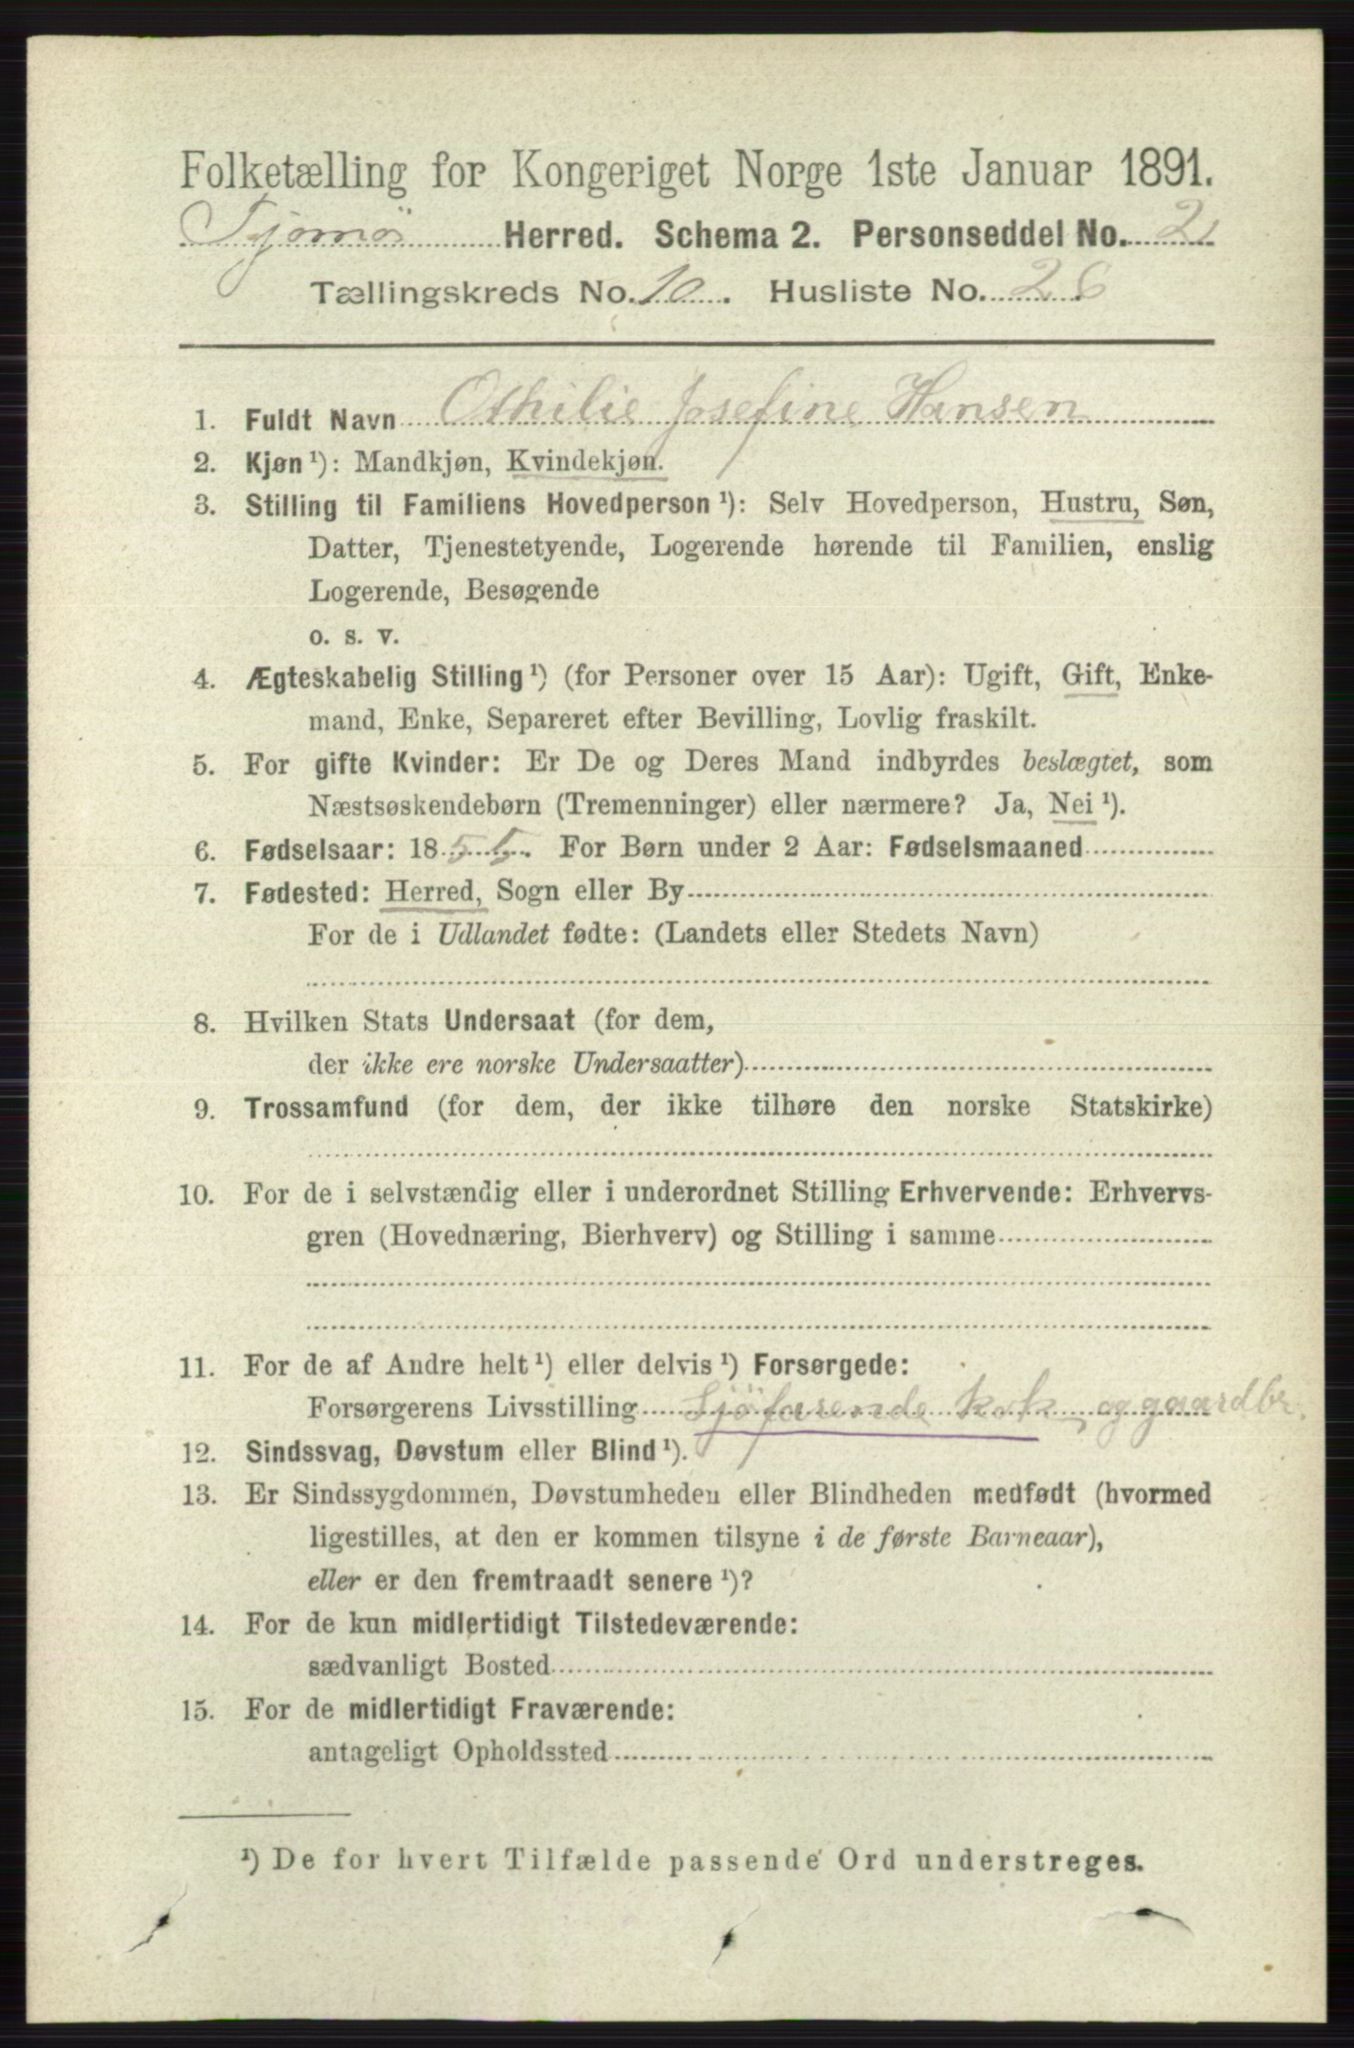 Folketælling for Kongeriget Norge 1ste Januar 1891.
Tjømø Herred. Schema 2. Personseddel No. 2
Tællingskreds No. 10. Husliste No. 26
1. Fuldt Navn Othilie Josefine Hansen
2. Kjøn¹): Mandkjøn, Kvindekjøn.
3. Stilling til Familiens Hovedperson¹): Selv Hovedperson, Hustru, Søn,
Datter, Tjenestetyende, Logerende hørende til Familien, enslig
Logerende, Besøgende
o. s. v.
4. Ægteskabelig Stilling¹) (for Personer over 15 Aar): Ugift, Gift, Enke-
mand, Enke, Separeret efter Bevilling, Lovlig fraskilt.
5. For gifte Kvinder: Er De og Deres Mand indbyrdes beslægtet, som
Næstsøskendebørn (Tremenninger) eller nærmere? Ja, Nei¹).
6. Fødselsaar: 1855. For Børn under 2 Aar: Fødselsmaaned
7. Fødested: Herred, Sogn eller By
For de i Udlandet fødte: (Landets eller Stedets Navn)
8. Hvilken Stats Undersaat (for dem,
der ikke ere norske Undersaatter)
9. Trossamfund (for dem, der ikke tilhøre den norske Statskirke)
10. For de i selvstændig eller i underordnet Stilling Erhvervende: Erhvervs-
gren (Hovednæring, Bierhverv) og Stilling i samme
11. For de af Andre helt¹) eller delvis¹) Forsørgede:
Forsørgerens Livsstilling Sjöfarende kok og gaardbr.
12. Sindssvag, Døvstum eller Blind¹).
13. Er Sindssygdommen, Døvstumheden eller Blindheden medfødt (hvormed
ligestilles, at den er kommen tilsyne i de første Barneaar),
eller er den fremtraadt senere¹)?
14. For de kun midlertidigt Tilstedeværende:
sædvanligt Bosted
15. For de midlertidigt Fraværende:
antageligt Opholdssted
¹) De for hvert Tilfælde passende Ord understreges.